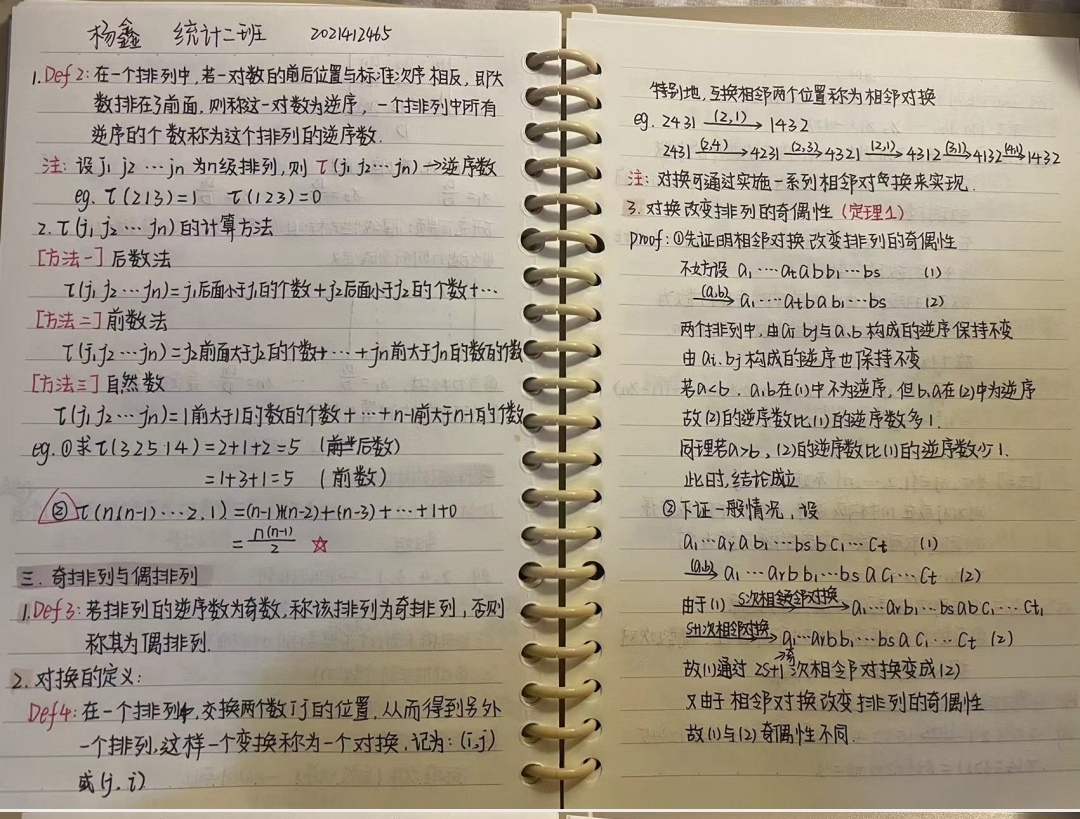 杨鑫 统计二班 2021412465
1. Def 2: 在一个排列中,若一对数的前后位置与标准次序相反,即大
数排在了前面,则称这一对数为逆序,一个排列中所有
逆序的个数称为这个排列的逆序数.
注: 设 j1 j2 ⋯ jn 为n级排列,则 τ(j1 j2 ⋯ jn) → 逆序数
eg. τ(213)=1 τ(123)=0
2. τ(j1 j2 ⋯ jn) 的计算方法
[方法一] 后数法
τ(j1 j2 ⋯ jn) = j1后面小于j1的个数 + j2后面小于j2的个数 + ⋯
[方法二] 前数法
τ(j1 j2 ⋯ jn) = j2前面大于j2的个数 + ⋯ + jn前大于jn的数的个数
[方法三] 自然数
τ(j1 j2 ⋯ jn) = 1前大于1的数的个数 + ⋯ + n-1前大于n-1的个数
eg. ① 求 τ(32514) = 2+1+2 = 5 (后数)
= 1+3+1 = 5 (前数)
② τ(n(n-1) ⋯ 2.1) = (n-1)+(n-2)+(n-3)+ ⋯ +1+0
= n(n-1)/2 ☆
三. 奇排列与偶排列
1. Def 3: 若排列的逆序数为奇数,称该排列为奇排列,否则
称其为偶排列.
2. 对换的定义:
Def 4: 在一个排列中,交换两个数i j的位置,从而得到另外
一个排列,这样一个变换称为一个对换,记为: (i,j)
或(j, i)
特别地,互换相邻两个位置称为相邻对换
eg. 2431 —(2,1)→ 1432
2431 —(2,4)→ 4231 —(2,3)→ 4321 —(2,1)→ 4312 —(3,1)→ 4132 —(4,1)→ 1432
注: 对换可通过实施一系列相邻对换来实现.
3. 对换改变排列的奇偶性 (定理1)
proof: ①先证明相邻对换改变排列的奇偶性
不妨设 a1 ⋯ at a b b1 ⋯ bs (1)
—(a,b)→ a1 ⋯ at b a b1 ⋯ bs (2)
两个排列中,由ai bj与a.b构成的逆序保持不变
由ai. bj 构成的逆序也保持不变
若a<b, a,b在(1)中不为逆序,但b,a在(2)中为逆序
故(2)的逆序数比(1)的逆序数多1.
同理若a>b, (2)的逆序数比(1)的逆序数少1.
此时,结论成立
②下证一般情况,设
a1 ⋯ ar a b1 ⋯ bs b c1 ⋯ ct (1)
—(a,b)→ a1 ⋯ ar b b1 ⋯ bs a c1 ⋯ ct (2)
由于(1) —S次相邻对换→ a1 ⋯ ar b1 ⋯ bs a b c1 ⋯ ct,
—S+1次相邻对换→ a1 ⋯ ar b b1 ⋯ bs a c1 ⋯ ct (2)
故(1)通过 2S+1→奇 次相邻对换变成(2)
又由于相邻对换改变排列的奇偶性
故(1)与(2)奇偶性不同.